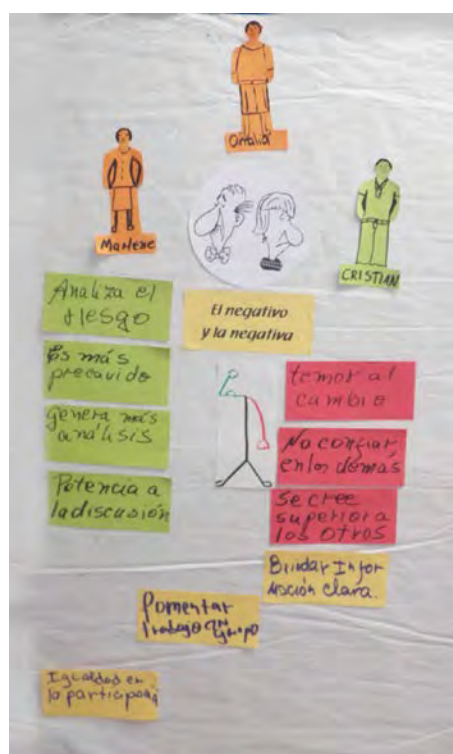 Onalia
Marlene
CRISTIAN
El negativo
y la negativa
Analiza el
riesgo
Es más
precavido
genera más
análisis
Potencia a
la discusión
temor al
cambio
No confiar
en los demás
Se cree
superior a
los otros
Brindar Infor
mación clara.
Fomentar
trabajo en
grupo
Igualdad en
la participa